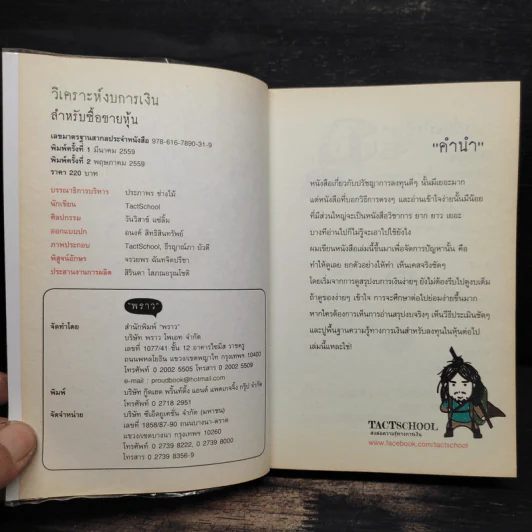 วิเคราะห์งบการเงิน
สำหรับซื้อขายหุ้น
เลขมาตรฐานสากลประจำหนังสือ 978-616-7890-31-9
พิมพ์ครั้งที่ 1 มีนาคม 2559
พิมพ์ครั้งที่ 2 พฤษภาคม 2559
ราคา 220 บาท
บรรณาธิการบริหาร ประภาพร ช่างไม้
นักเขียน TactSchool
ศิลปกรรม วันวิสาข์ แซ่ลิ้ม
ออกแบบปก อนงค์ สิทธิสินทรัพย์
ภาพประกอบ TactSchool, ธีรญาณ์ภา ยัวดี
พิสูจน์อักษร จรวยพร ฉันทจิตปรีชา
ประสานงานการผลิต สิรินดา โสภณอรุณโชติ
"พราว"
จัดทำโดย สำนักพิมพ์ "พราว"
บริษัท พราว โพเอท จำกัด
เลขที่ 1077/41 ชั้น 12 อาคารไซมิส ราชครู
ถนนพหลโยธิน แขวงเขตพญาไท กรุงเทพฯ 10400
โทรศัพท์ 0 2002 5505 โทรสาร 0 2002 5509
e-mail : proudbook@hotmail.com
พิมพ์ บริษัท กู๊ดเฮด พริ้นท์ติ้ง แอนด์ แพคเกจจิ้ง กรุ๊ป จำกัด
โทรศัพท์ 0 2718 2951
จัดจำหน่าย บริษัท ซีเอ็ดยูเคชั่น จำกัด (มหาชน)
เลขที่ 1858/87-90 ถนนบางนา-ตราด
แขวงเขตบางนา กรุงเทพฯ 10260
โทรศัพท์ 0 2739 8222, 0 2739 8000
โทรสาร 0 2739 8356-9
"คำนำ"
หนังสือเกี่ยวกับปรัชญาการลงทุนดีๆ นั้นมีเยอะมาก
แต่หนังสือที่บอกวิธีการตรงๆ และอ่านเข้าใจง่ายนั้นมีน้อย
ที่มีส่วนใหญ่จะเป็นหนังสือวิชาการ ยาก ยาว เยอะ
บางทีอ่านไปก็ไม่รู้จะเอาไปใช้ยังไง
ผมเขียนหนังสือเล่มนี้ขึ้นมาเพื่อจัดการปัญหานั้น คือ
ทำให้ดูเลย ยกตัวอย่างให้ทำ เห็นเคสจริงชัดๆ
โดยเริ่มจากการดูสรุปงบการเงินง่ายๆ ยังไม่ต้องรีบไปดูงบเต็ม
ถ้าดูของง่ายๆ เข้าใจ การจะศึกษาต่อไปย่อมง่ายขึ้นมาก
หากใครต้องการเห็นการอ่านสรุปงบจริงๆ เห็นวิธีประเมินชัดๆ
และปูพื้นฐานความรู้ทางการเงินสำหรับลงทุนในหุ้นต่อไป
เล่มนี้แหละใช่!
TACTSCHOOL
www.facebook.com/tactschool